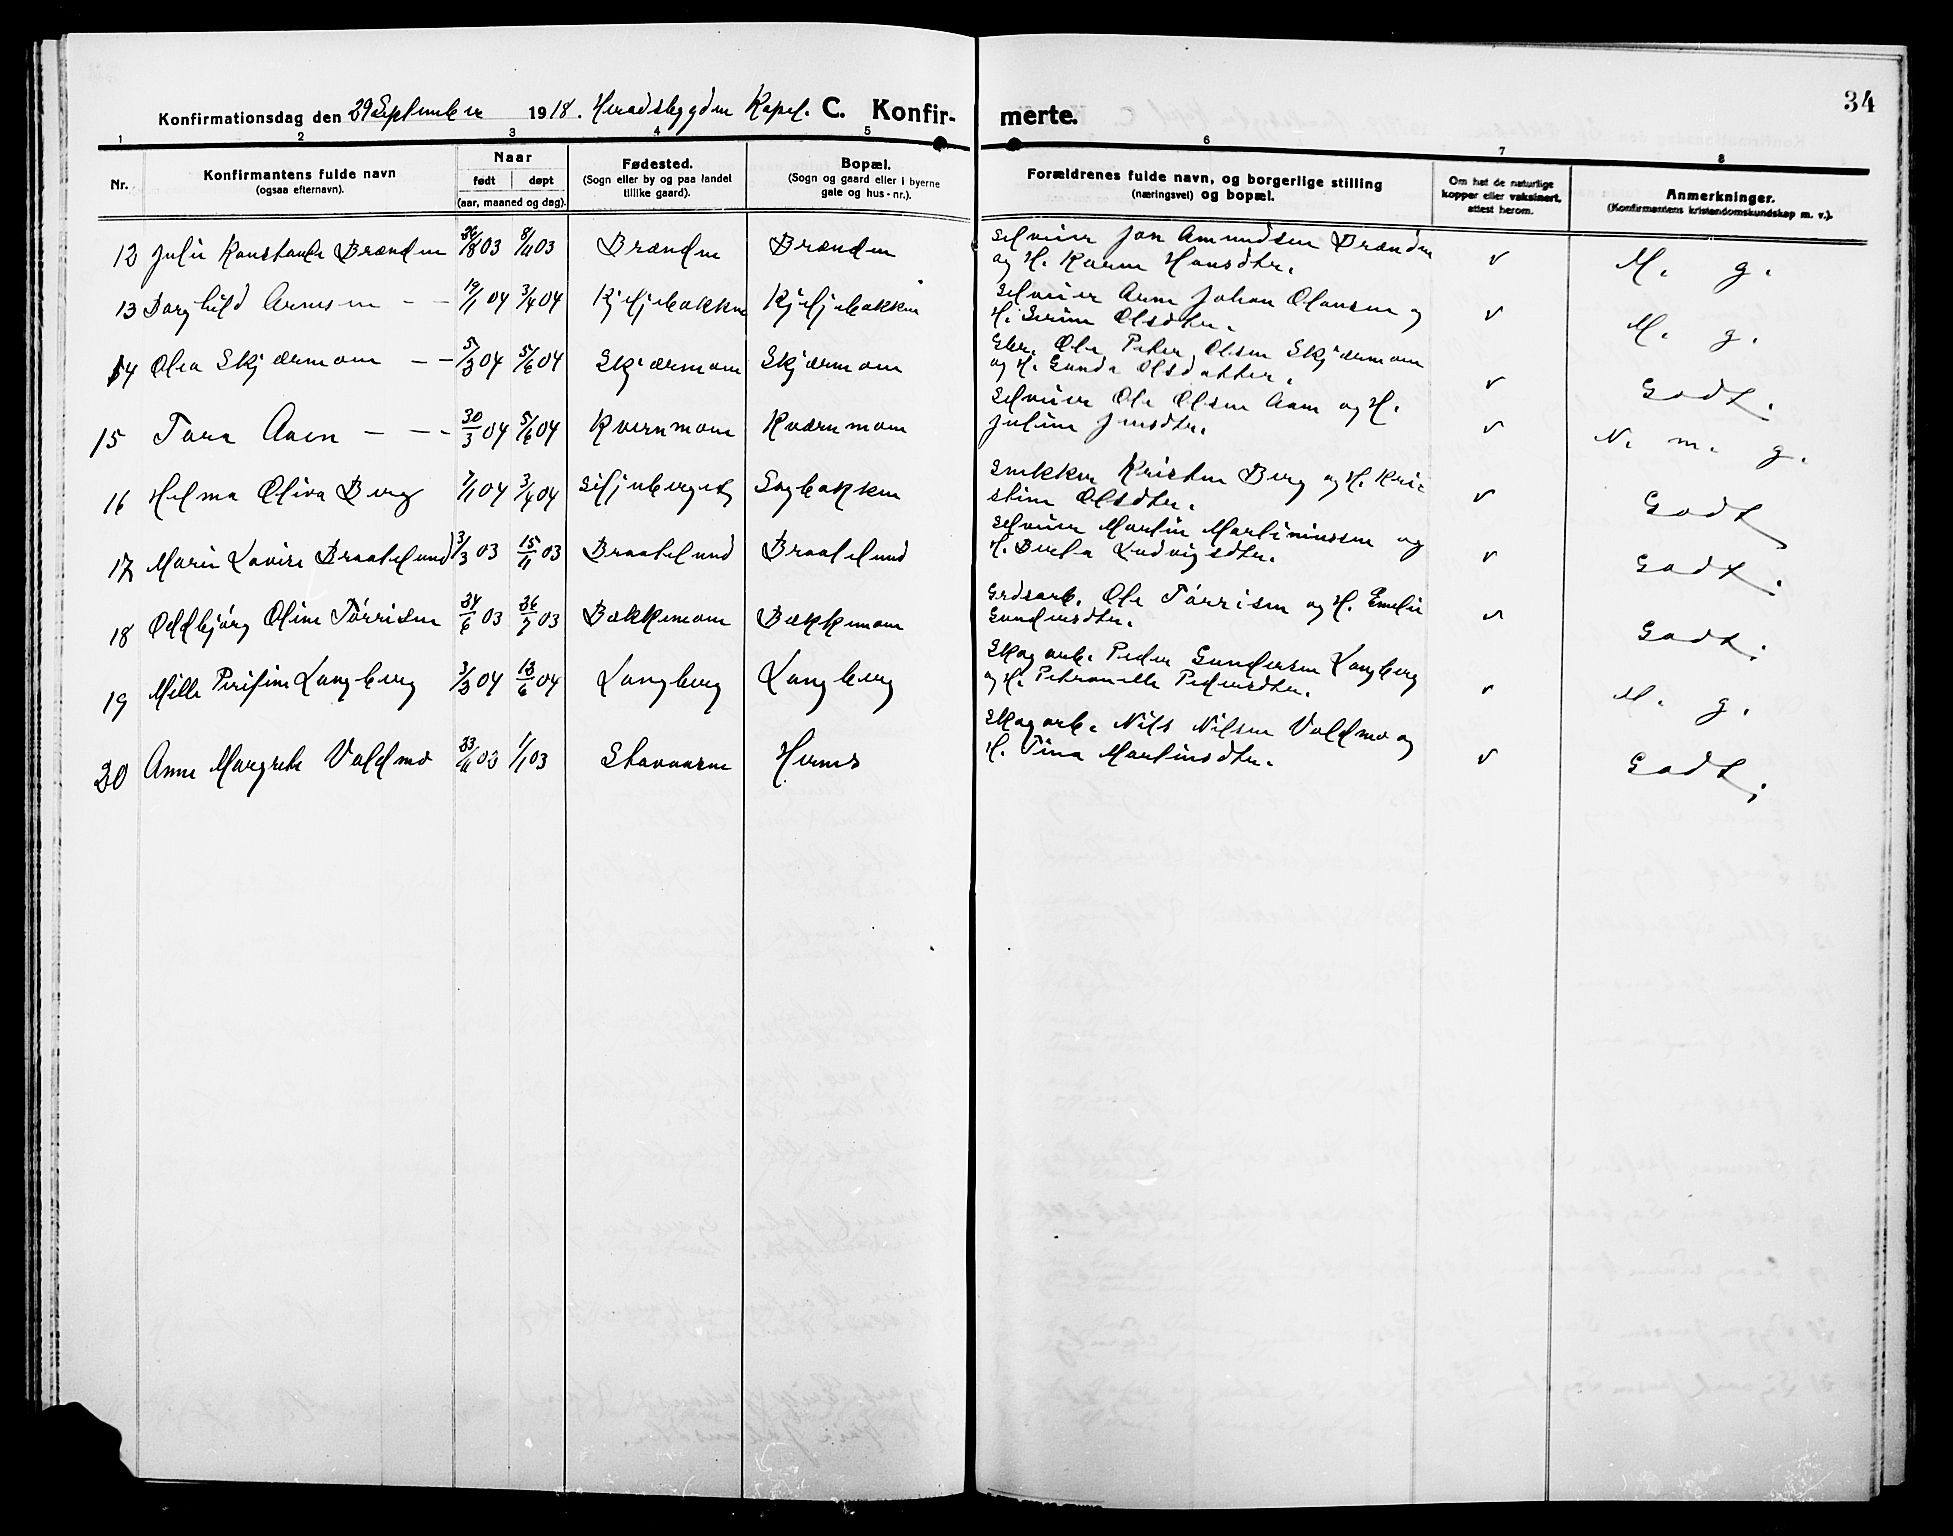 34
Konfirmationsdag den 29 September 1918. Heradsbygden Kapel. C. Konfir- merte.
1 2 3 4 5 6 7 8
Nr.
Konfirmantens fulde navn
(ogsaa efternavn).
Naar
født døpt
(aar, maaned og dag).
Fødested.
(Sogn eller by og paa landet
tillike gaard).
Bopæl.
(Sogn og gaard eller i byerne
gate og hus-nr.).
Forældrenes fulde navn, og borgerlige stilling
(næringsvei) og bopæl.
Om hat de naturlige
kopper eller vaksinert,
attest herom.
Anmerkninger.
(Konfirmantens kristendomskundskap m. v.).
12 Julie Konstance Brænden 26/8 03 8/11 03 Brænden Brænden
Selveier Jon Amundsen Brænden
og H. Karen Hansdtr. v M. g.
13 Borghild Arnesen — — 19/1 04 3/4 04 Kjeljebakken Kjeljebakken
Selveier Arne Johan Olausen og
H. Serine Olsdtr. v M. g.
14 Olea Skjærmoen — — 5/3 04 5/6 04 Skjærmoen Skjærmoen
Gbr. Ole Peder Olsen Skjærmoen
og H. Gunda Olsdatter. v Godt.
15 Tora Aaen — — — 30/3 04 5/6 04 Kvernmoen Kværnmoen
Selveier Ole Olsen Aaen og H.
Juline Jensdtr. v N. m. g.
16 Helma Oliva Berg 7/1 04 3/4 04 Siljuberget Sagbakken
Snekker Kristen Berg og H. Kri-
stine Olsdtr. v Godt
17 Marie Lovise Braatelund 3/3 03 15/11 03 Braatelund Braatelund
Selveier Martin Martiniussen og
H. Berta Ludvigsdtr. v Godt.
18 Oddbjørg Oline Tørrisen 24/6 03 26/7 03 Bækkemoen Bækkemoen
Grdsarb. Ole Tørrisen og H. Emelie
Gundersdtr. v Godt.
19 Mille Perifine Langberg 3/3 04 12/6 04 Langberg Langberg
Skogarb. Peder Gundersen Langberg
og H. Petronelle Pedersdtr. v M. g.
20 Anne Margrete Voldmo 03 1/1 03 Stavaasen Hernes
Skogarb. Nils Nilsen Voldmo og
H. Tina Martinsdtr. v Godt.